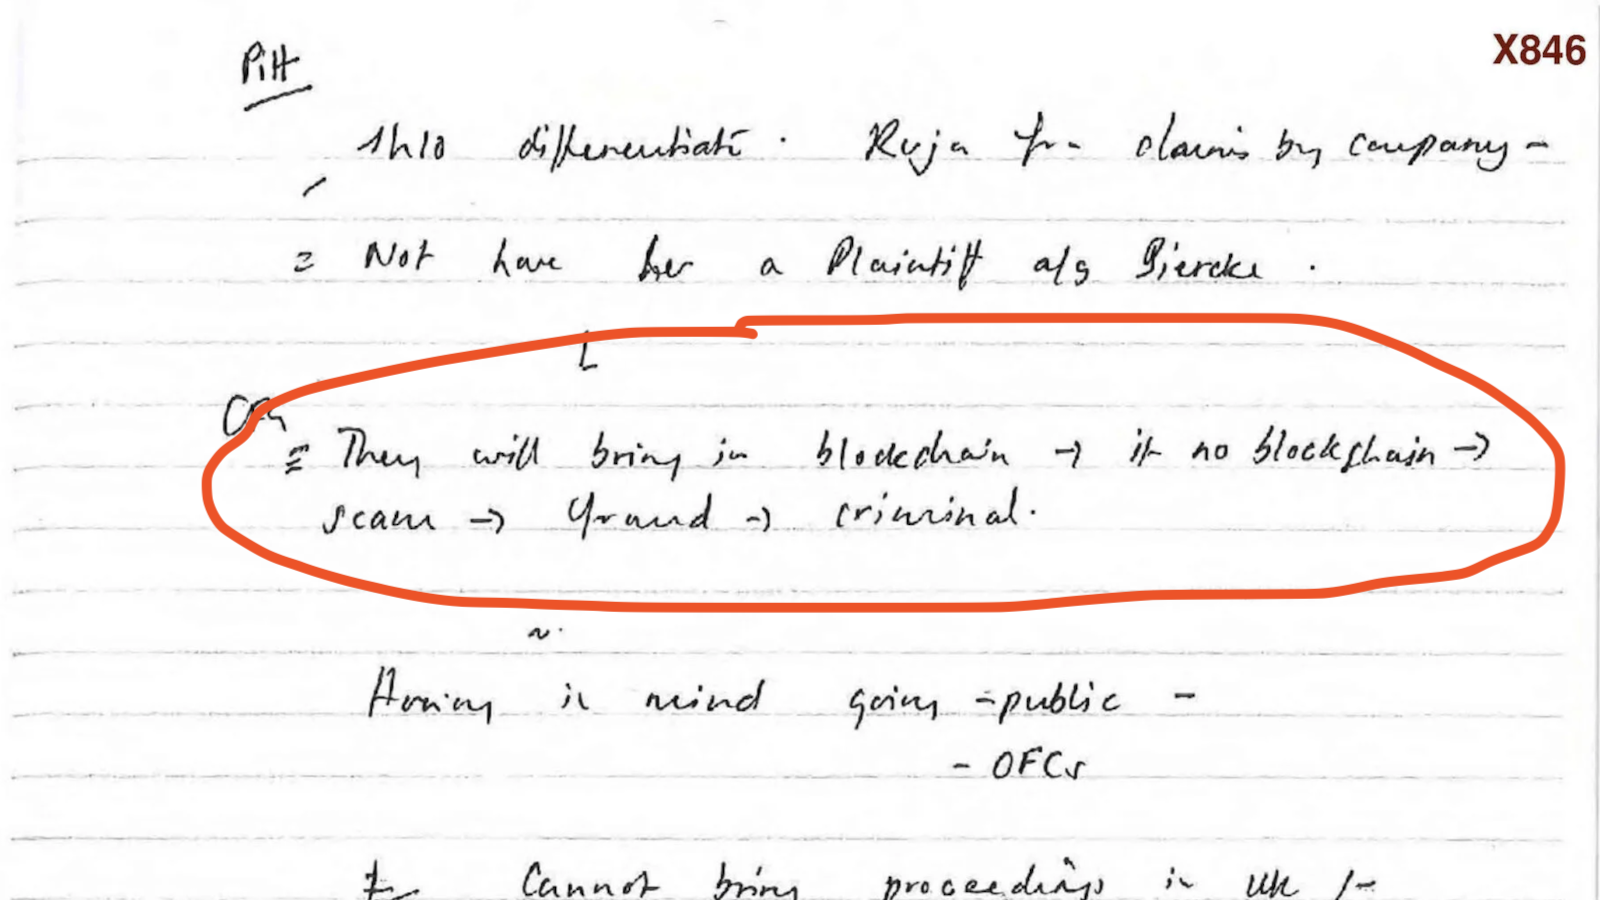 X846
Pitt
Shld differentiate. Ruja from claims by company -
= Not have her a Plaintiff a/g Biercke.
L
= They will bring in blockchain → if no blockchain →
scam → fraud → criminal.
Having in mind going - public -
- OFCs
Cannot bring proceedings in UK